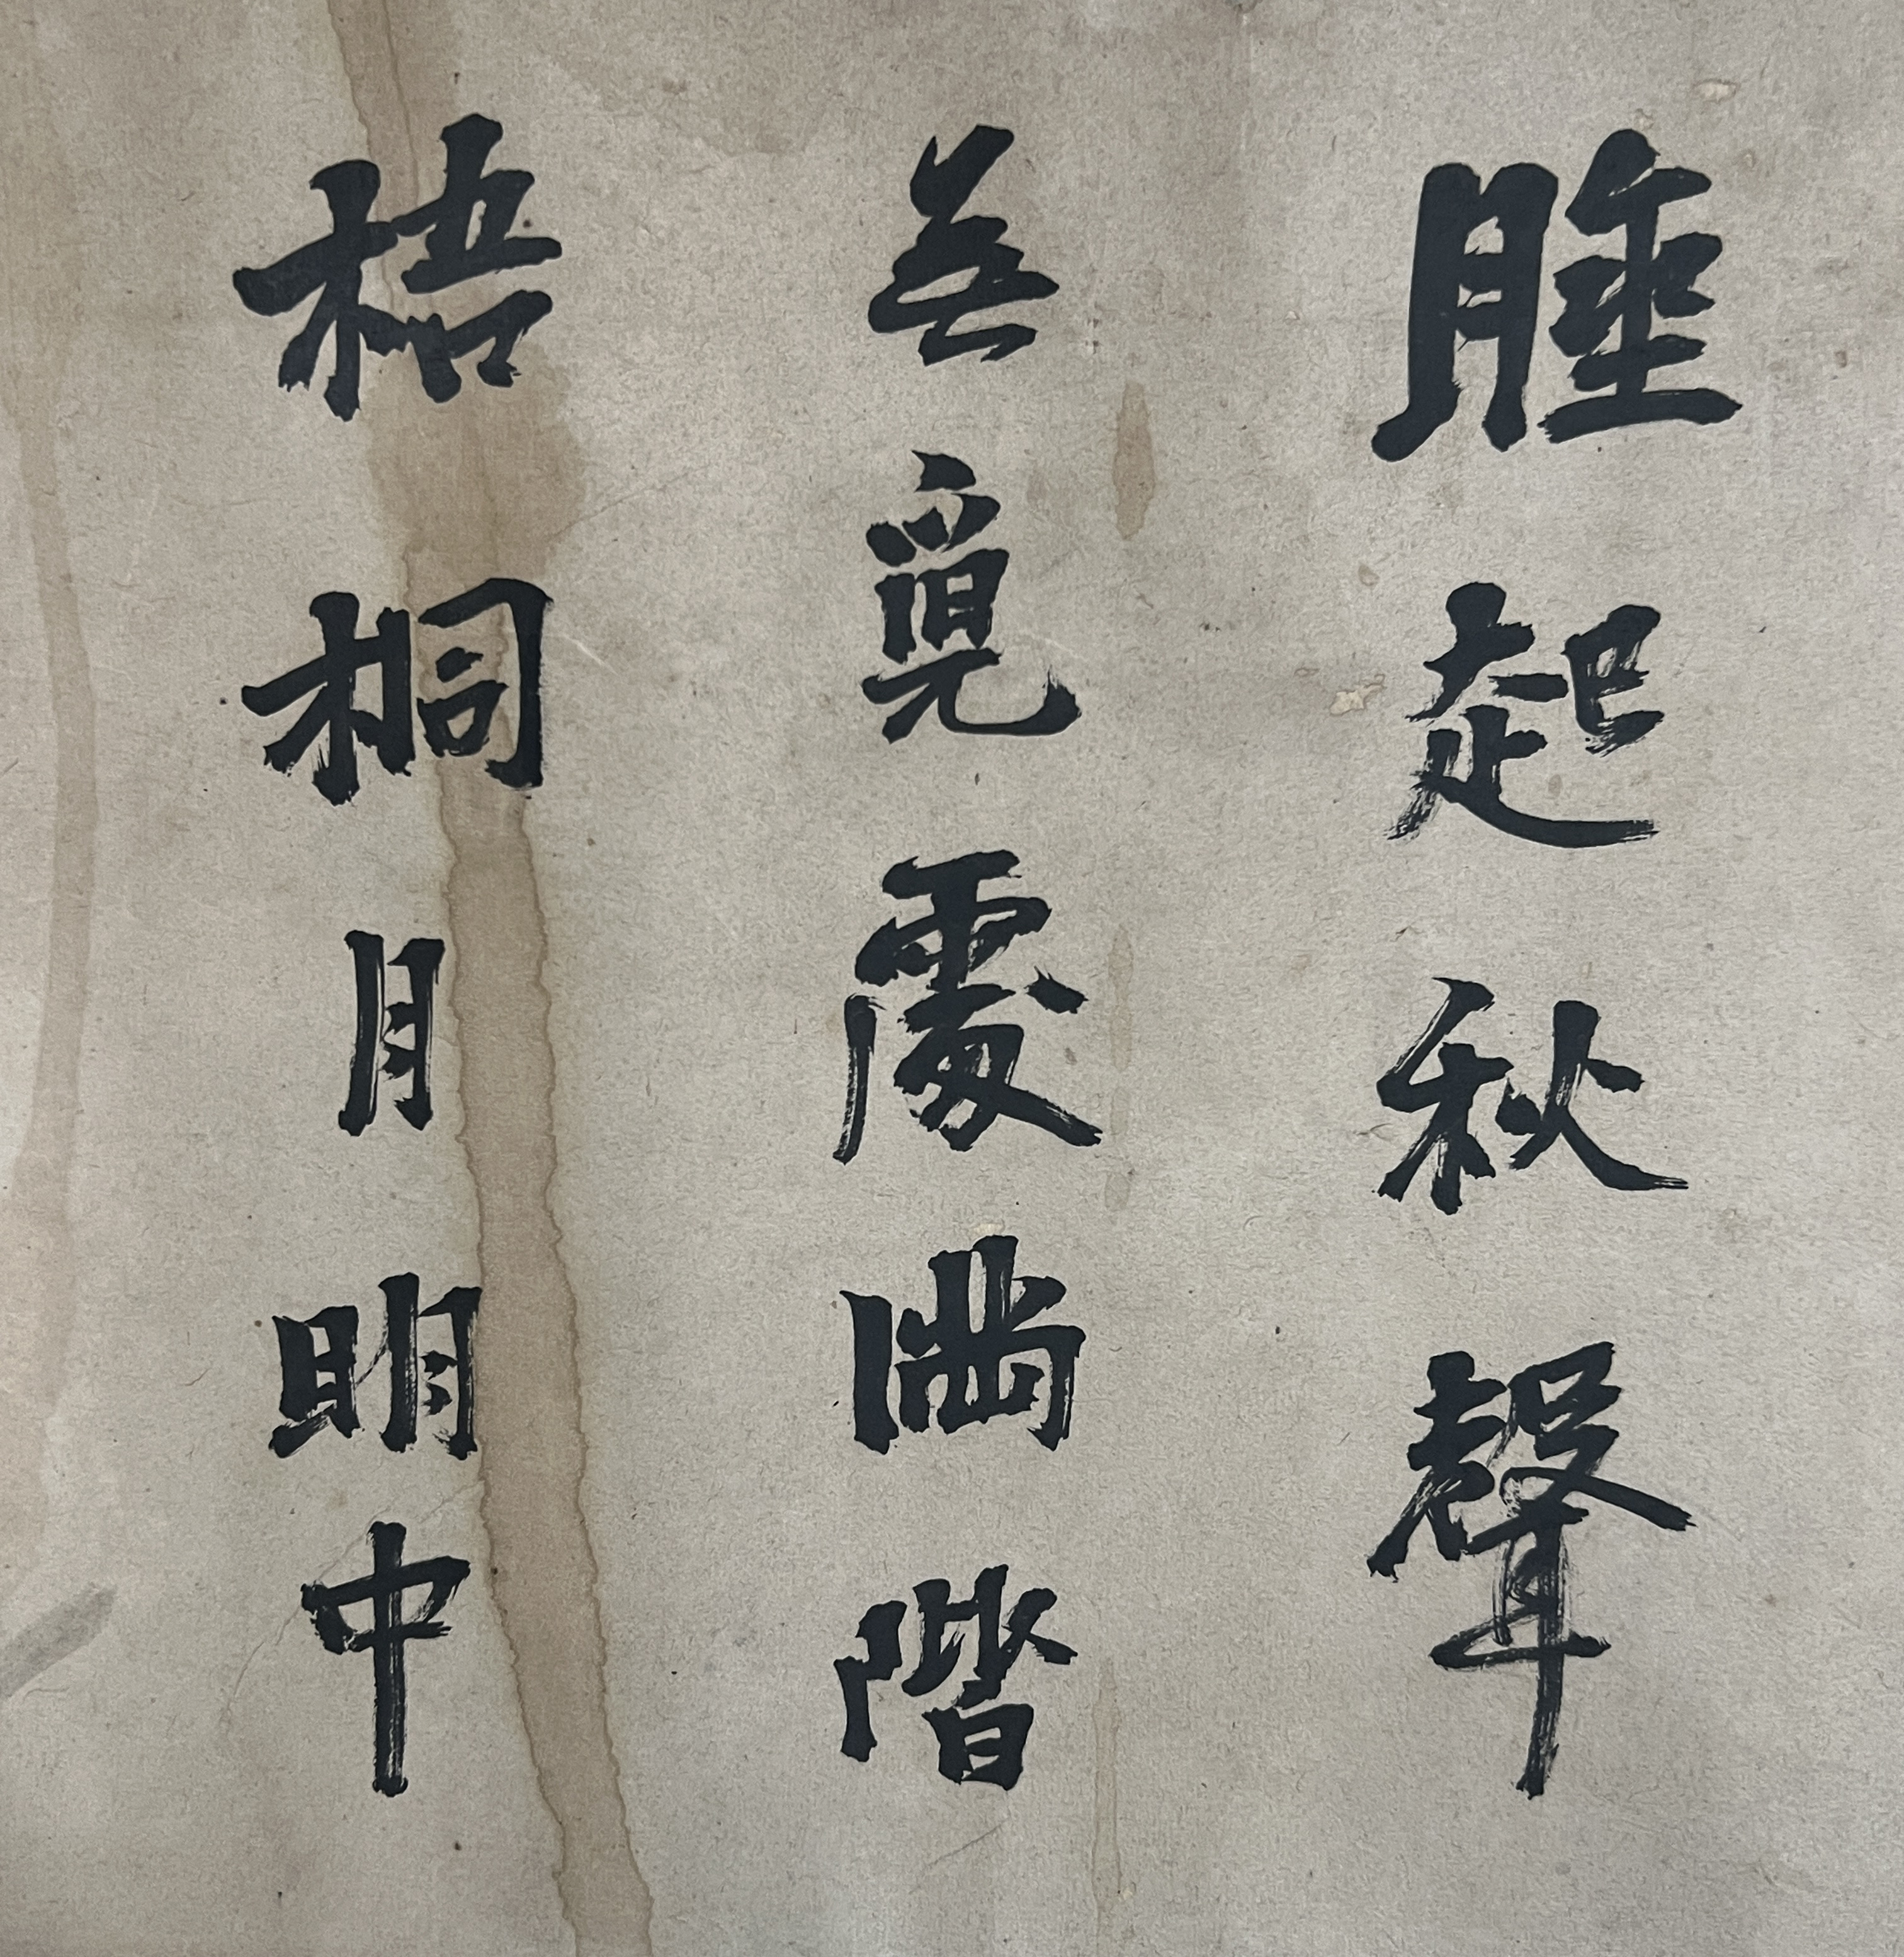 睡起秋聲
無覓處滿階
梧桐月明中